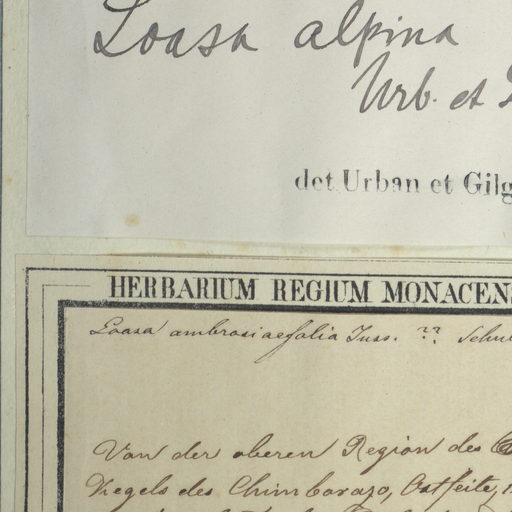 Loasa alpina
Urb. et
det Urban et Gilg
HERBARIUM REGIUM MONACENS
Loasa ambrosiaefolia Juss. ??
Von der oberen Region des
Kegels des Chimborazo, Ostseite,